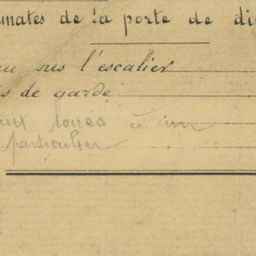 mates de la porte de di
sus l'escalier
s de garde
loués à un
particulier